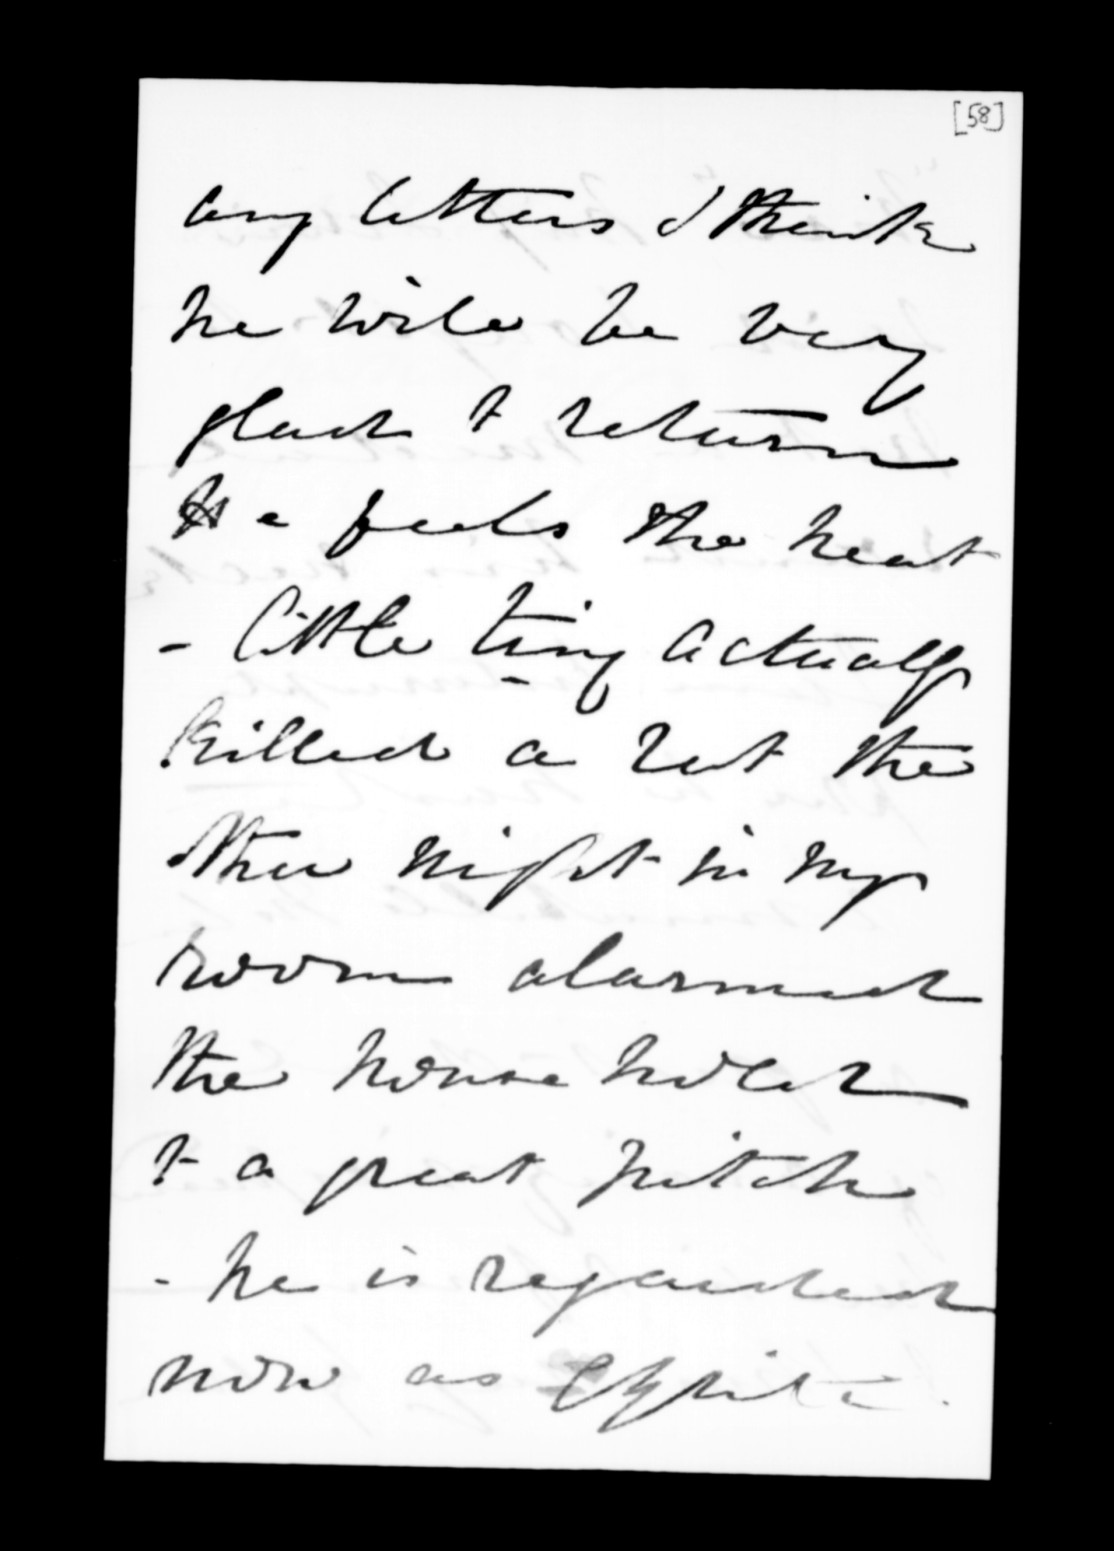 [58]
any letters I think
he will be very
glad to return
He feels the heat
- little tiny actually
killed a rat the
other night in my
room alarmed
the house hold
to a great pitch
- he is regarded
now as